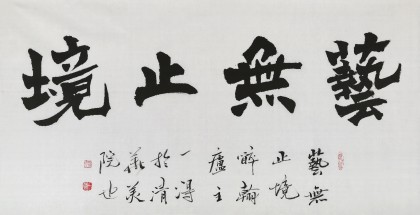 藝無止境
藝無
止境
醉翰
廬主
一得
於清
華美
院也